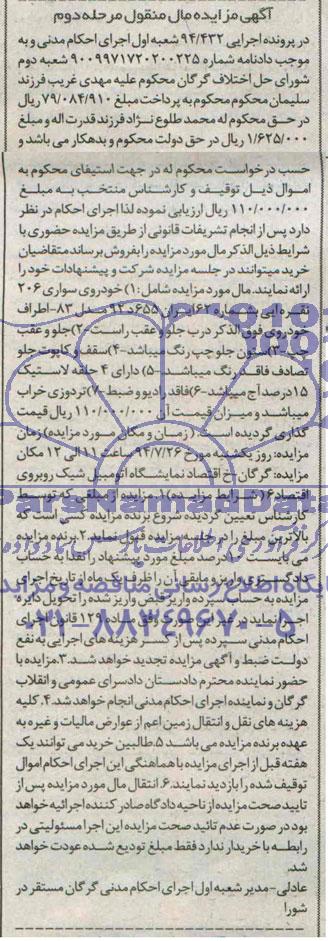 آگهی مزایده مال منقول مرحله دوم
در پرونده اجرایی ۹۴/۴۳۲ شعبه اول اجرای احکام مدنی و به
موجب دادنامه شماره ۹۰۰۹۹۷۱۷۲۰۲۰۰۲۲۵ شعبه دوم
شورای حل اختلاف گرگان محکوم علیه مهدی غریب فرزند
سلیمان محکوم به پرداخت مبلغ ۷۹/۰۸۴/۹۱۰ ریال
در حق محکوم له محمد طلوع نژاد فرزند قدرت اله و مبلغ
۱/۶۲۵/۰۰۰ ریال در حق دولت محکوم و بدهکار می باشد و
حسب درخواست محکوم له در جهت استیفای محکوم به
اموال ذیل توقیف و کارشناس منتخب به مبلغ
۱۱۰/۰۰۰/۰۰۰ ریال ارزیابی نموده لذا اجرای احکام در نظر
دارد پس از انجام تشریفات قانونی از طریق مزایده حضوری با
شرایط ذیل الذکر مال مورد مزایده را بفروش برساند متقاضیان
خرید میتوانند در جلسه مزایده شرکت و پیشنهادات خود را
ارائه نمایند. مال مورد مزایده شامل: ۱) خودروی سواری ۲۰۶
نقره ایی به شماره ۶۲ ایران ۶۵۵د۹۳ مدل ۸۳-اطراف
خودروی فوق الذکر درب جلو و عقب راست-۲)جلو و عقب
چپ-۳)ستون جلو چپ رنگ میباشد-۴)سقف و کاپوت جلو
تصادف فاقد رنگ میباشد-۵) دارای ۴ حلقه لاستیک
۱۵درصد آج میباشد-۶)فاقد رادیو و ضبط-۷)تردوزی خراب
میباشد و میزان قیمت آن ۱۱۰/۰۰۰/۰۰۰ ریال قیمت
گذاری گردیده است. (زمان و مکان مورد مزایده) زمان
مزایده: روز یکشنبه مورخ ۹۴/۷/۲۶ ساعت ۱۱الی ۱۲ مکان
مزایده: گرگان-خ اقتصاد نمایشگاه اتومبیل شیک روبروی
اقتصاد۶ (شرایط مزایده)۱. مزایده از مبلغی که توسط
کارشناس تعیین گردیده شروع برنده مزایده کسی است که
بالاترین مبلغ را در جلسه مزایده قبول نماید.۲.برنده مزایده
می بایست ۱۰درصد مبلغ مورد پیشنهاد را نقدا به حساب
دادگستری واریز و مابقی آن را ظرف یک ماه از تاریخ اجرای
مزایده به حساب سپرده واریز فیش واریز شده را تحویل دایره
اجرا نماید در غیر این صورت وفق ماده ۱۲۹ قانون اجرای
احکام مدنی سپرده پس از کسر هزینه های اجرایی به نفع
دولت ضبط و آگهی مزایده تجدید خواهد شد.۳.مزایده با
حضور نماینده محترم دادستان دادسرای عمومی و انقلاب
گرگان و نماینده اجرای احکام مدنی انجام خواهد شد.۴. کلیه
هزینه های نقل و انتقال زمین اعم از عوارض مالیات و غیره به
عهده برنده مزایده می باشد ۵.طالبین خرید می توانند یک
هفته قبل از اجرای مزایده با هماهنگی این اجرای احکام اموال
توقیف شده را بازدید نمایند.۶. انتقال مال مورد مزایده پس از
تایید صحت مزایده از ناحیه دادگاه صادر کننده اجرائیه خواهد
بود در صورت عدم تائید صحت مزایده این اجرا مسئولیتی در
رابطه با خریدار ندارد فقط مبلغ تودیع شده عودت خواهد
شد.
عادلی-مدیر شعبه اول اجرای احکام مدنی گرگان مستقر در
شورا
ParsNamadData
۰۲۱-۸۸۳۴۹۶۷۰-۵